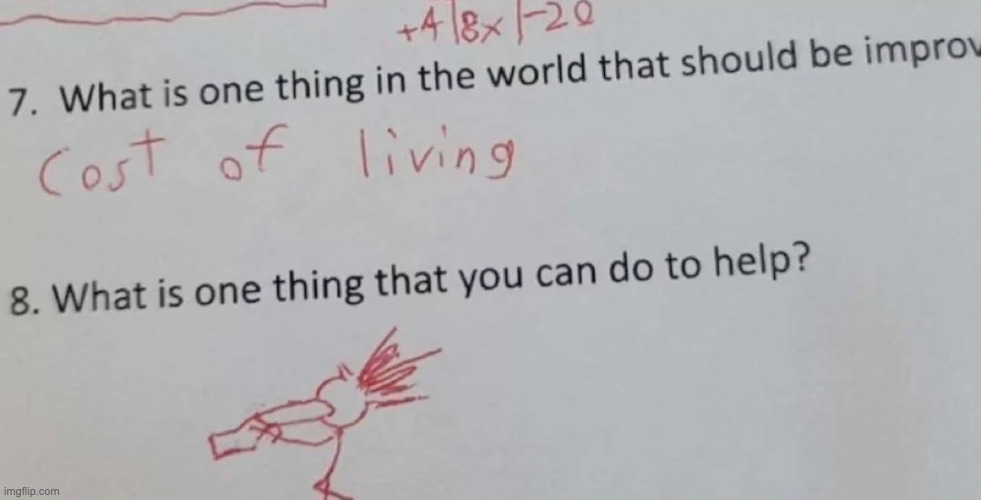 +4|8x|-20
7. What is one thing in the world that should be improv
Cost of living
8. What is one thing that you can do to help?
imgflip.com